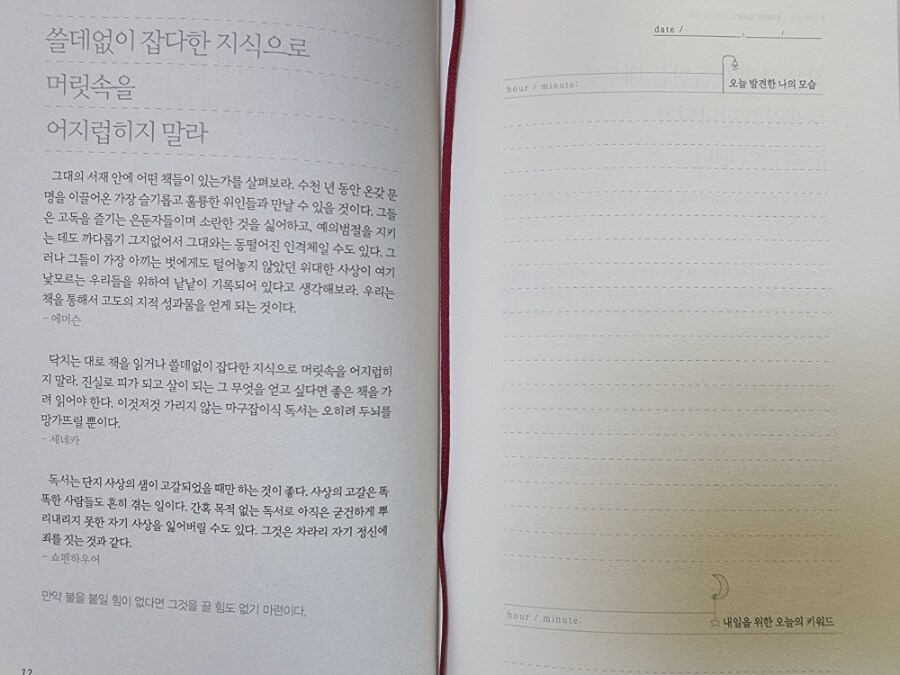 쓸데없이 잡다한 지식으로
머릿속을
어지럽히지 말라
그대의 서재 안에 어떤 책들이 있는가를 살펴보라. 수천 년 동안 온갖 문
명을 이끌어온 가장 슬기롭고 훌륭한 위인들과 만날 수 있을 것이다. 그들
은 고독을 즐기는 은둔자들이며 소란한 것을 싫어하고, 예의범절을 지키
는 데도 까다롭기 그지없어서 그대와는 동떨어진 인격체일 수도 있다. 그
러나 그들이 가장 아끼는 벗에게도 털어놓지 않았던 위대한 사상이 여기
낯모르는 우리들을 위하여 낱낱이 기록되어 있다고 생각해보라. 우리는
책을 통해서 고도의 지적 성과물을 얻게 되는 것이다.
- 에머슨
닥치는 대로 책을 읽거나 쓸데없이 잡다한 지식으로 머릿속을 어지럽히
지 말라. 진실로 피가 되고 살이 되는 그 무엇을 얻고 싶다면 좋은 책을 가
려 읽어야 한다. 이것저것 가리지 않는 마구잡이식 독서는 오히려 두뇌를
망가뜨릴 뿐이다.
- 세네카
독서는 단지 사상의 샘이 고갈되었을 때만 하는 것이 좋다. 사상의 고갈은 똑
똑한 사람들도 흔히 겪는 일이다. 간혹 목적 없는 독서로 아직은 굳건하게 뿌
리내리지 못한 자기 사상을 잃어버릴 수도 있다. 그것은 차라리 자기 정신에
죄를 짓는 것과 같다.
- 쇼펜하우어
만약 불을 붙일 힘이 없다면 그것을 끌 힘도 없기 마련이다.
12
date / . /
hour / minute:
오늘 발견한 나의 모습
hour / minute:
내일을 위한 오늘의 키워드